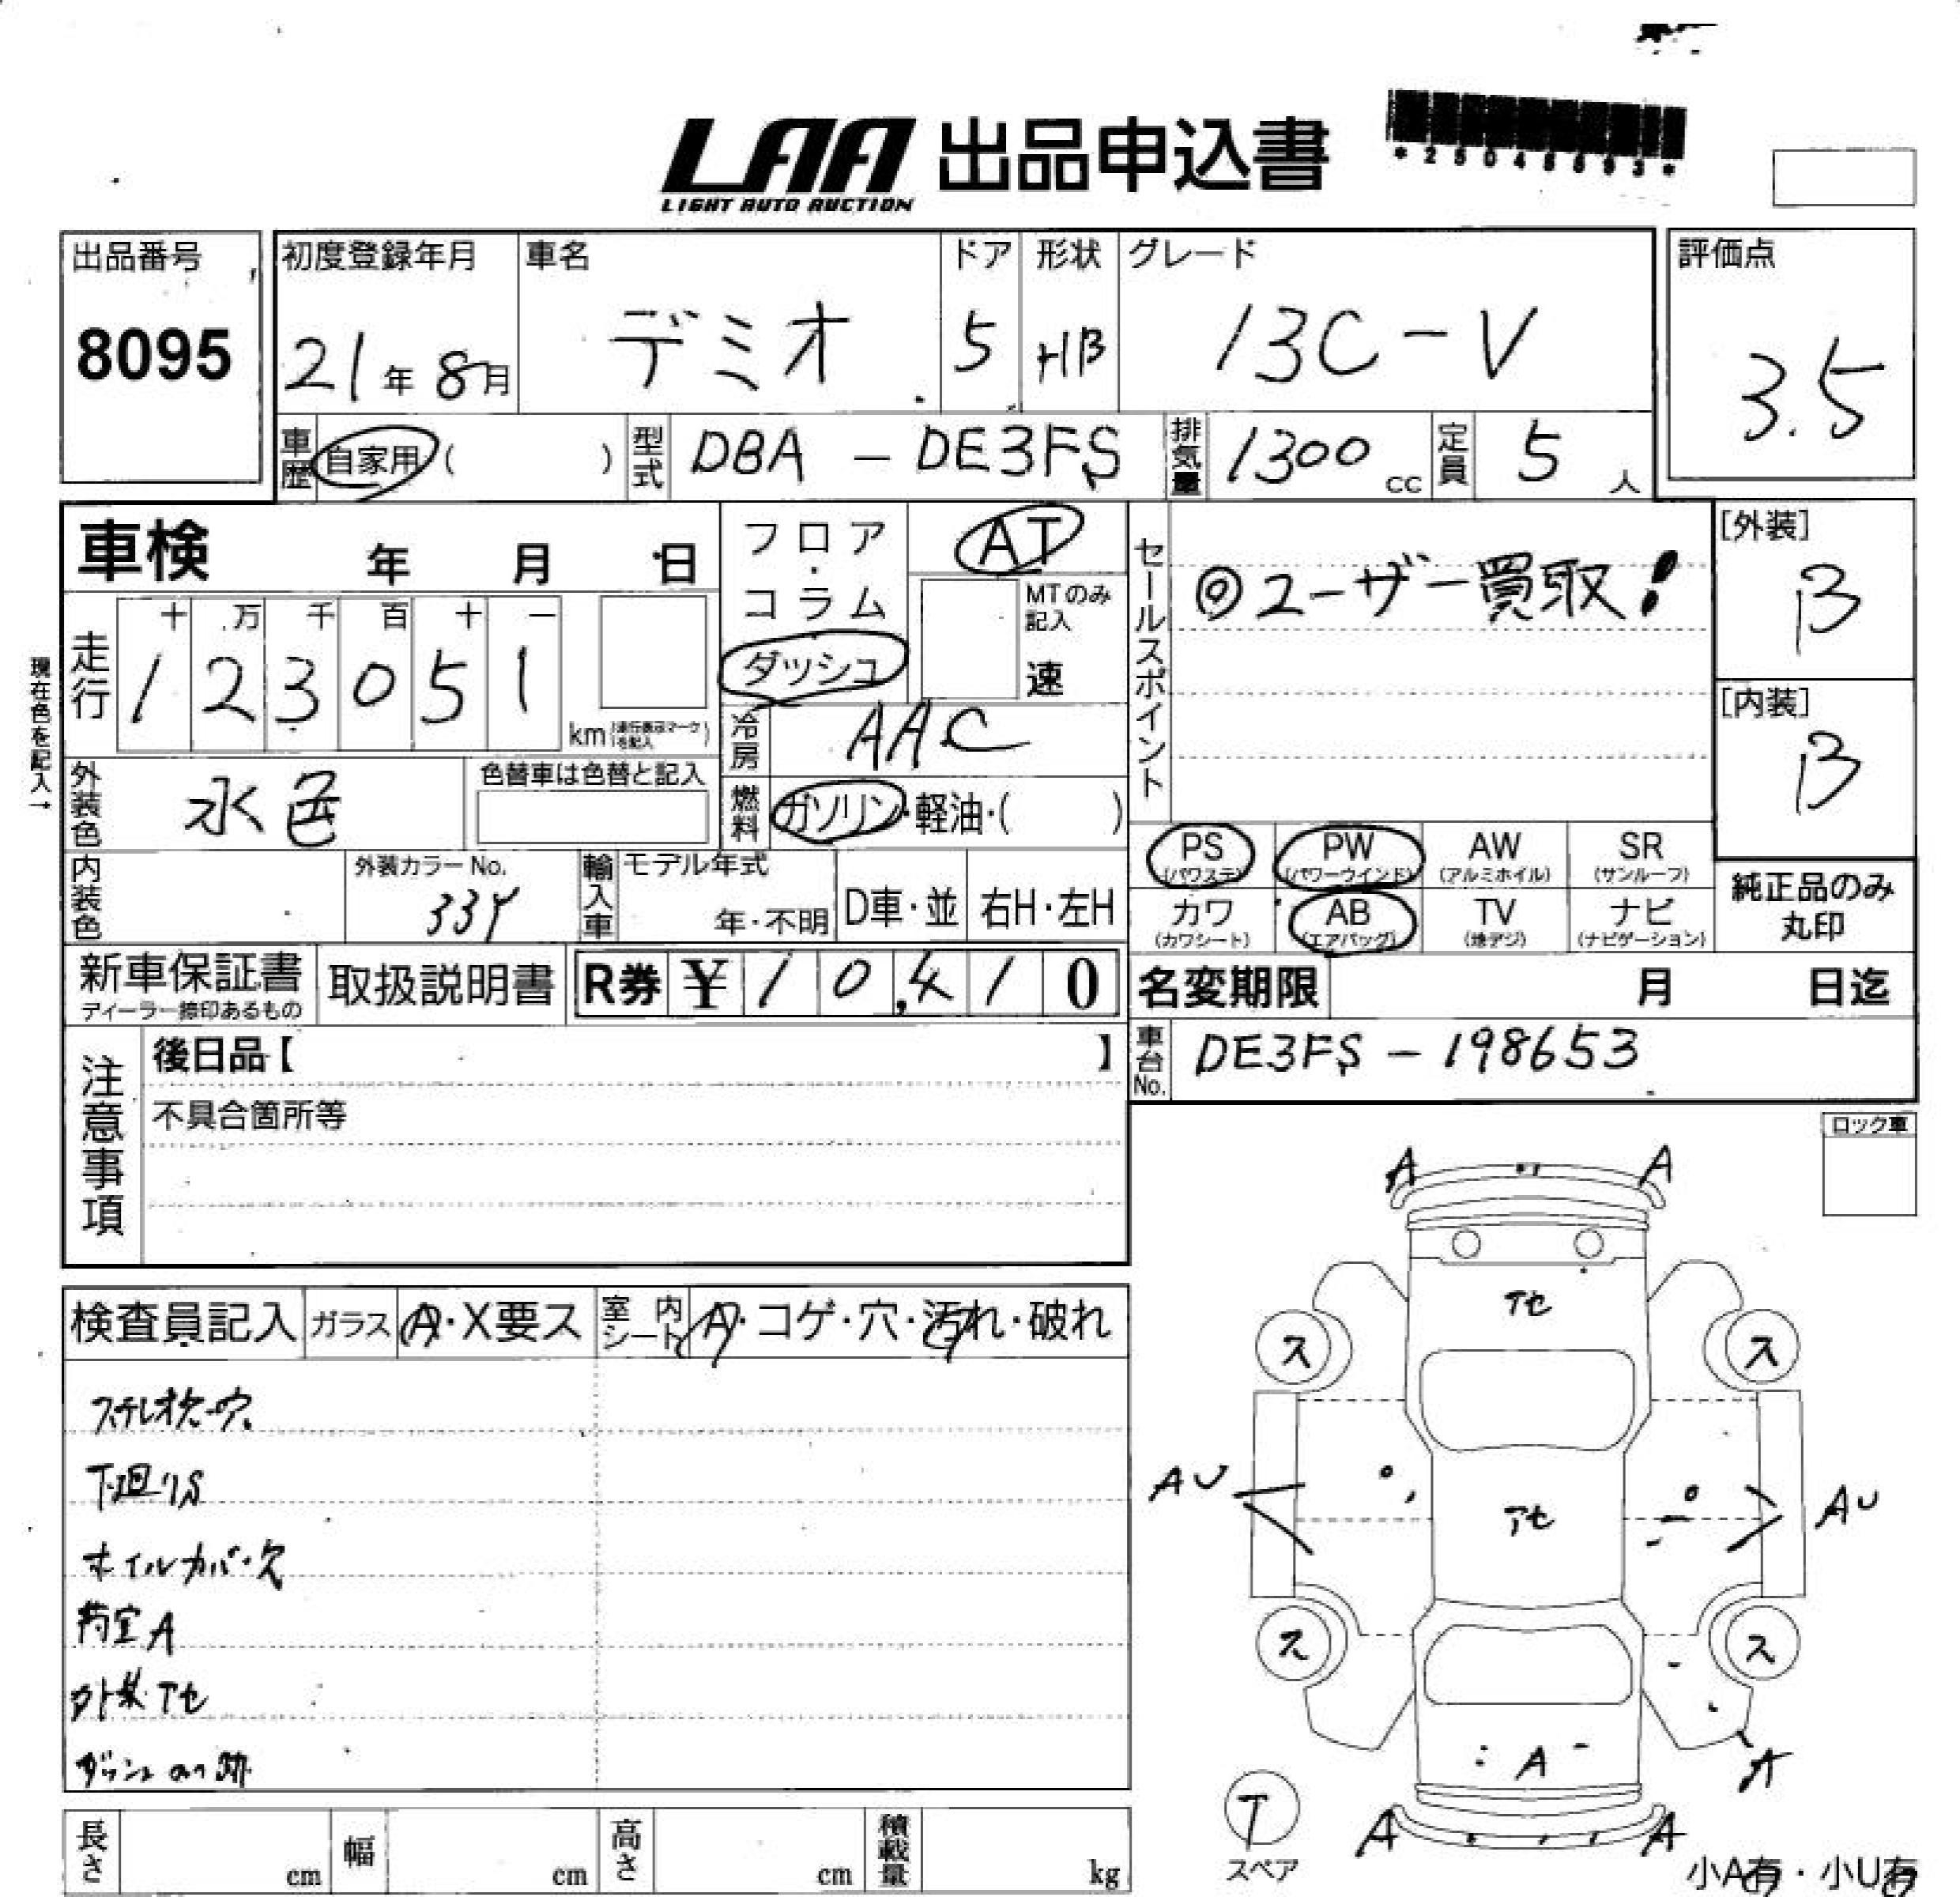 LAA 出品申込書
LIGHT AUTO AUCTION
出品番号
8095
初度登録年月 車名 ドア 形状 グレード
21年 8月 デミオ 5 HB 13C-V
評価点
3.5
車歴 自家用 ( ) 型式 DBA - DE3FS 排気量 1300 cc 定員 5 人
車検 年 月 日
フロア・コラム
ダッシュ
AT
MTのみ記入
速
セールスポイント
◎ユーザー買取!
[外装]
B
[内装]
B
現在色を記入→
走行
十 万 千 百 十 一
1 2 3 0 5 1
km (走行表示マークを記入)
冷房 AAC
外装色 水色
色替車は色替と記入
燃料 ガソリン・軽油・( )
PS (パワステ) PW (パワーウインド) AW (アルミホイル) SR (サンルーフ)
カワ (カワシート) AB (エアバッグ) TV (地デジ) ナビ (ナビゲーション)
純正品のみ
丸印
内装色
外装カラーNo.
33Y
輸入車 モデル年式
年・不明 D車・並 右H・左H
新車保証書
ディーラー捺印あるもの
取扱説明書
R券 ¥ 10,410
名変期限 月 日迄
車台No. DE3FS - 198653
注意事項
後日品【 】
不具合箇所等
ロック車
検査員記入 ガラス A・X要ス 室内シート A・コゲ・穴・汚れ・破れ
ステレオ欠穴
下廻りS
ホイルカバー欠
荷室A
外装アセ
A A
アセ
ス ス
AU アセ AU
ス ス
A
A
T
スペア
A A
長さ cm 幅 cm 高さ cm 積載量 kg
小A有・小U有